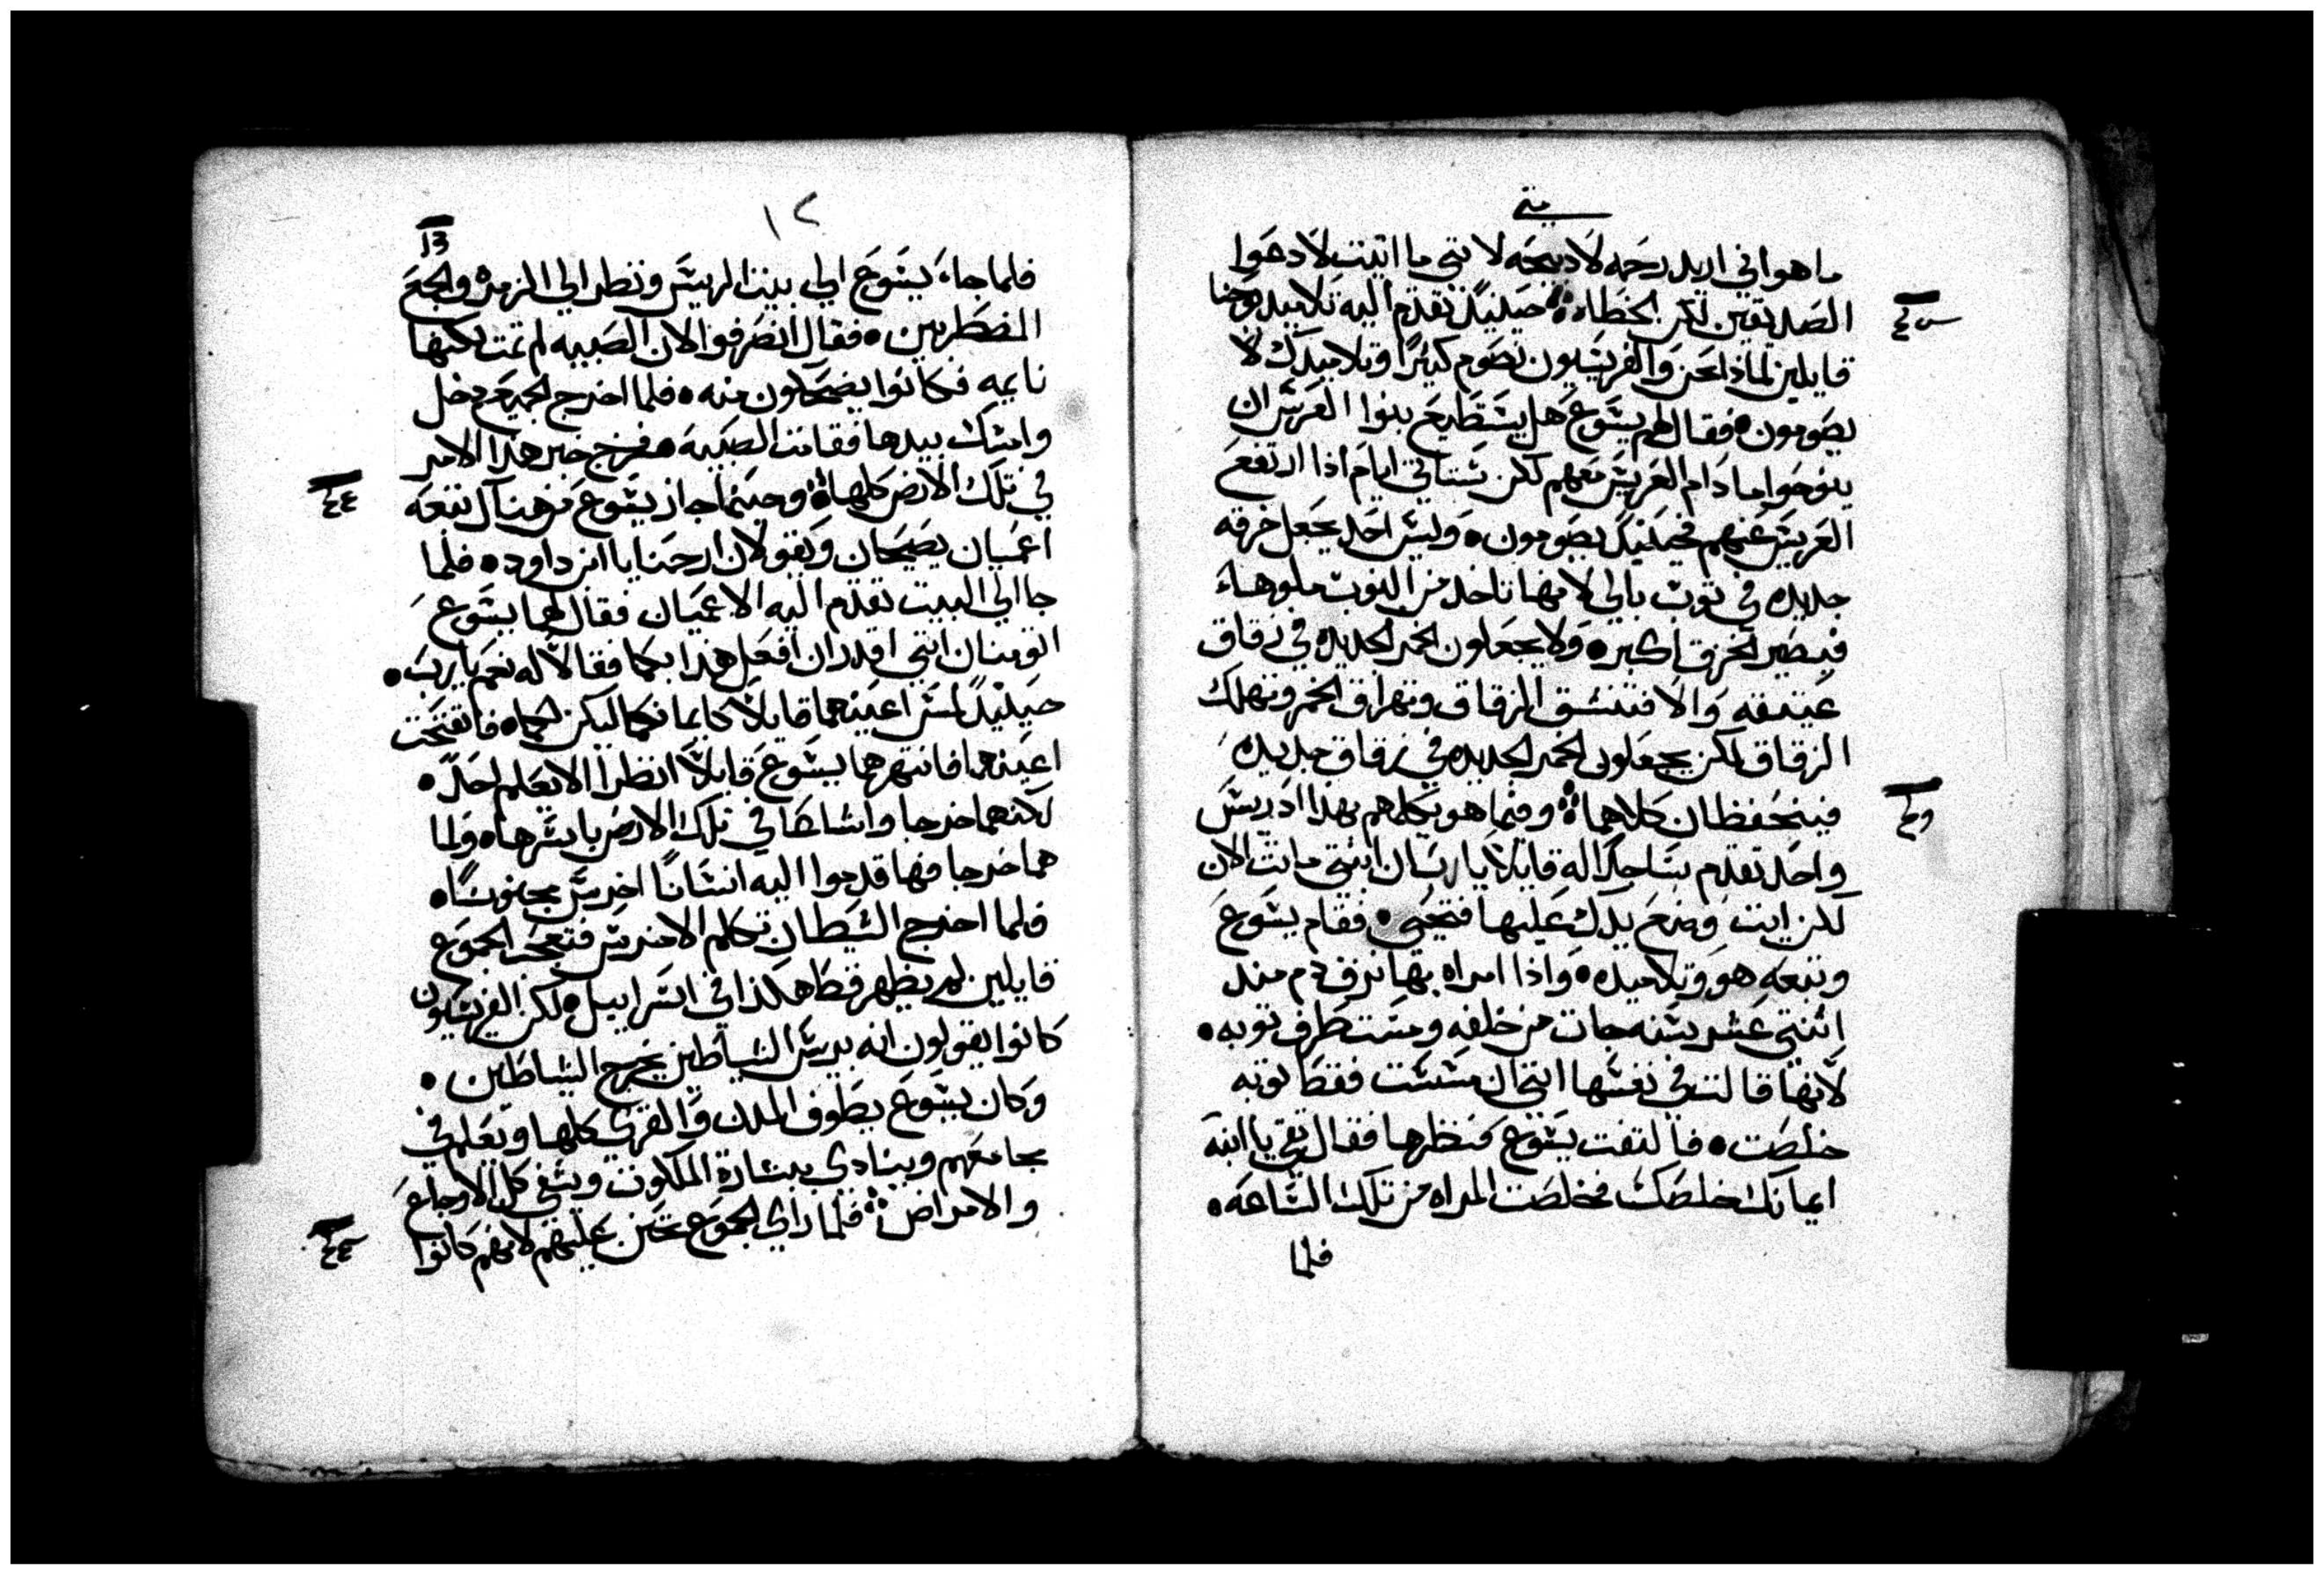 متى
ما هو اني اريد رحمه لا دبيحه لانني ما اتيت لادعوا
الصديقين لكن الخطاه حينيدٍ تقدم اليه تلاميد يوحنا
قايلين لماذا نحن والفريسيون نصوم كثيرًا وتلاميدك لا
يصومون فقال لهم يسوع هل يستطيع بنوا العرس ان
ينوحوا ما دام العريس معهم لكن ستاتي ايام اذا ارتفع
العريس عنهم فحينيدٍ يصومون وليس احد يجعل خرقه
جديده في توب بالي لانها تاخد من التوب ملوها
فيصير الخرق اكبر ولا يجعلون الخمر الجديده في زقاق
عتيقه والا فتنشق الزقاق وتهراق الخمر وتهلك
الزقاق لكن يجعلون الخمر الجديده في زقاق جديده
فينحفظان كلاهما وفيما هو يكلمهم بهذا اذ ريس
واحد تقدم ساجدًا له قايلًا يا رب ان ابنتي ماتت الان
لكن ايت وضع يدك عليها فتحيى فقام يسوع
وتبعه هو وتلاميده واذا امراه بها نزف دم مند
اثنتي عشر سنه جات من خلفه ومست طرف توبه
لانها قالت في نفسها انني ان مسست فقط توبه
خلصت فالتفت يسوع فنظرها فقال تقي يا ابنه
ايمانك خلصك فخلصت المراه من تلك الساعه
فلما
١٢
فلما جاء يسوع الى بيت الريس ونظر الي الزمره والجمع
المضطربين فقال انصرفوا لان الصبيه لم تمت لكنها
نايمه فكانوا يضحكون منه فلما اخرج الجميع دخل
وامسك بيدها فقامت الصبيه فخرج خبر هذا الامر
في تلك الارض كلها وحينما جاز يسوع من هناك تبعه
اعميان يصيحان ويقولان ارحمنا يا ابن داود فلما
جا الى البيت تقدم اليه الاعميان فقال لهما يسوع
اتومنان انني اقدر ان افعل هذا بكما فقالا له نعم يا رب
حينيدٍ لمس اعينهما قايلًا كايمانكما ليكن لكما فانفتحت
اعينهما فانتهرهما يسوع قايلًا انظرا الا يعلم احدٌ
لكنهما خرجا واشاعا في تلك الارض باسرها ولما
هما خرجا منها قدموا اليه انسانًا اخرس مجنونًا
فلما اخرج الشيطان تكلم الاخرس فتعجب الجموع
قايلين لم يظهر قط هكذا في اسراييل لكن الفريسيون
كانوا يقولون انه بريس الشياطين يخرج الشياطين
وكان يسوع يطوف المدن والقرى كلها ويعلم في
مجامعهم وينادي ببشارة الملكوت ويشفي كل الاوجاع
والامراض فلما راي الجموع تحنن عليهم لانهم كانوا